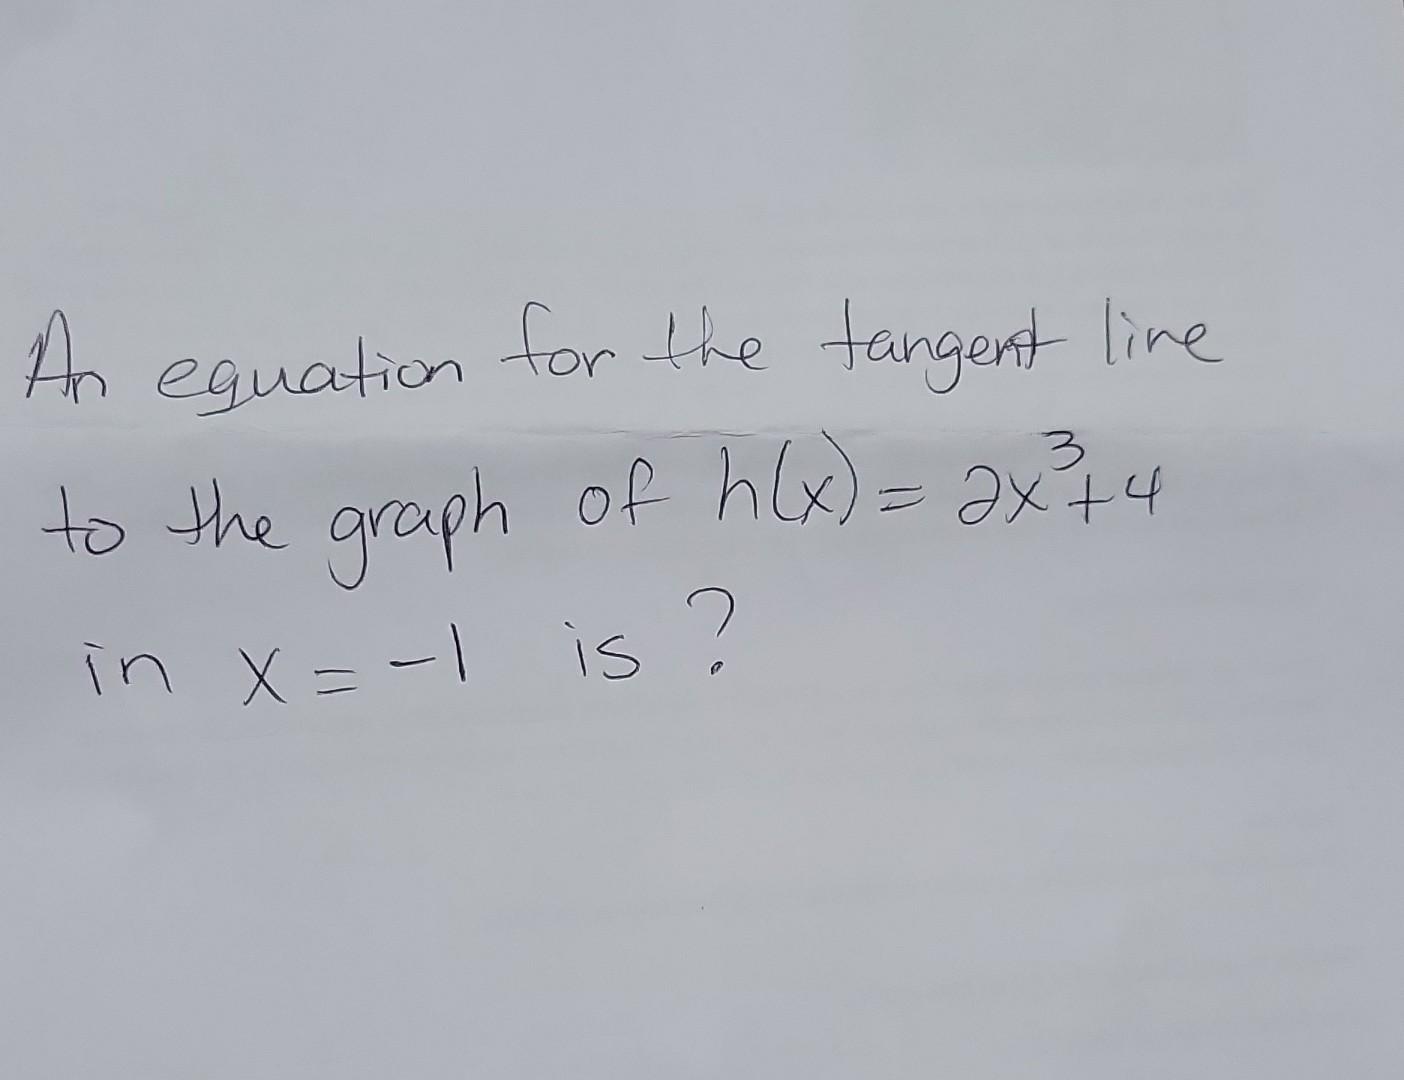 An equation for the tangent line
to the graph of h(x) = 2x³+4
in x = -1 is ?